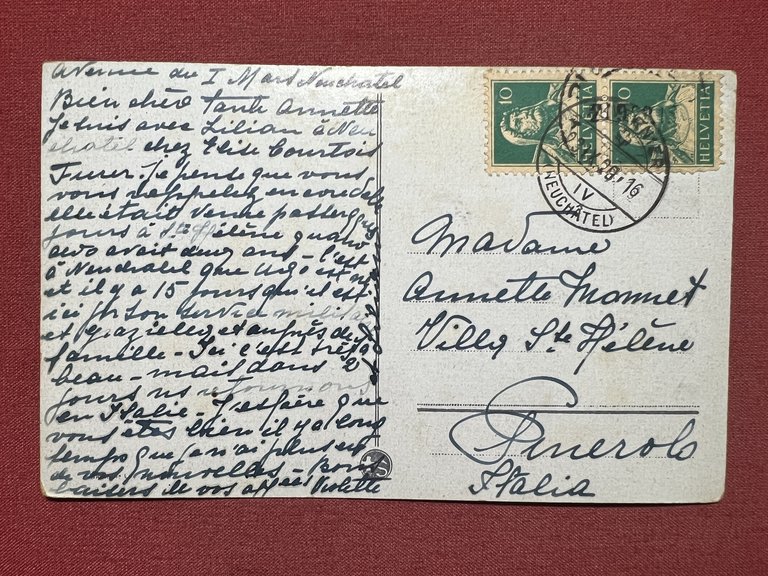 Avenue du I Mars Neuchatel
Bien chère Tante Annette
Je suis avec Lilian à Neu
chatel chez Elise Courtois
Furer. Je pense que vous
vous rappelez encore de
elle était venue passer qq
jours à Ste Hélène quand
avait deux ans - c'est
à Neuchatel que Ugo est né
et il y a 15 jours qu'il est
ici for son service militai
et Graziella est auprès de
famille - Ici c'est très
beau - mais dans 2
jours ns retournons
en Italie - J'espère que
vous êtes bien il y a long
temps que je n'ai plus eu
de vos nouvelles - Bons
baisers de vos affées Violette
10
10
HELVETIA
HELVETIA
IV
(NEUCHÂTEL)
Madame
Annette Monnet
Villa Ste Hélène
Pinerolo
Italia